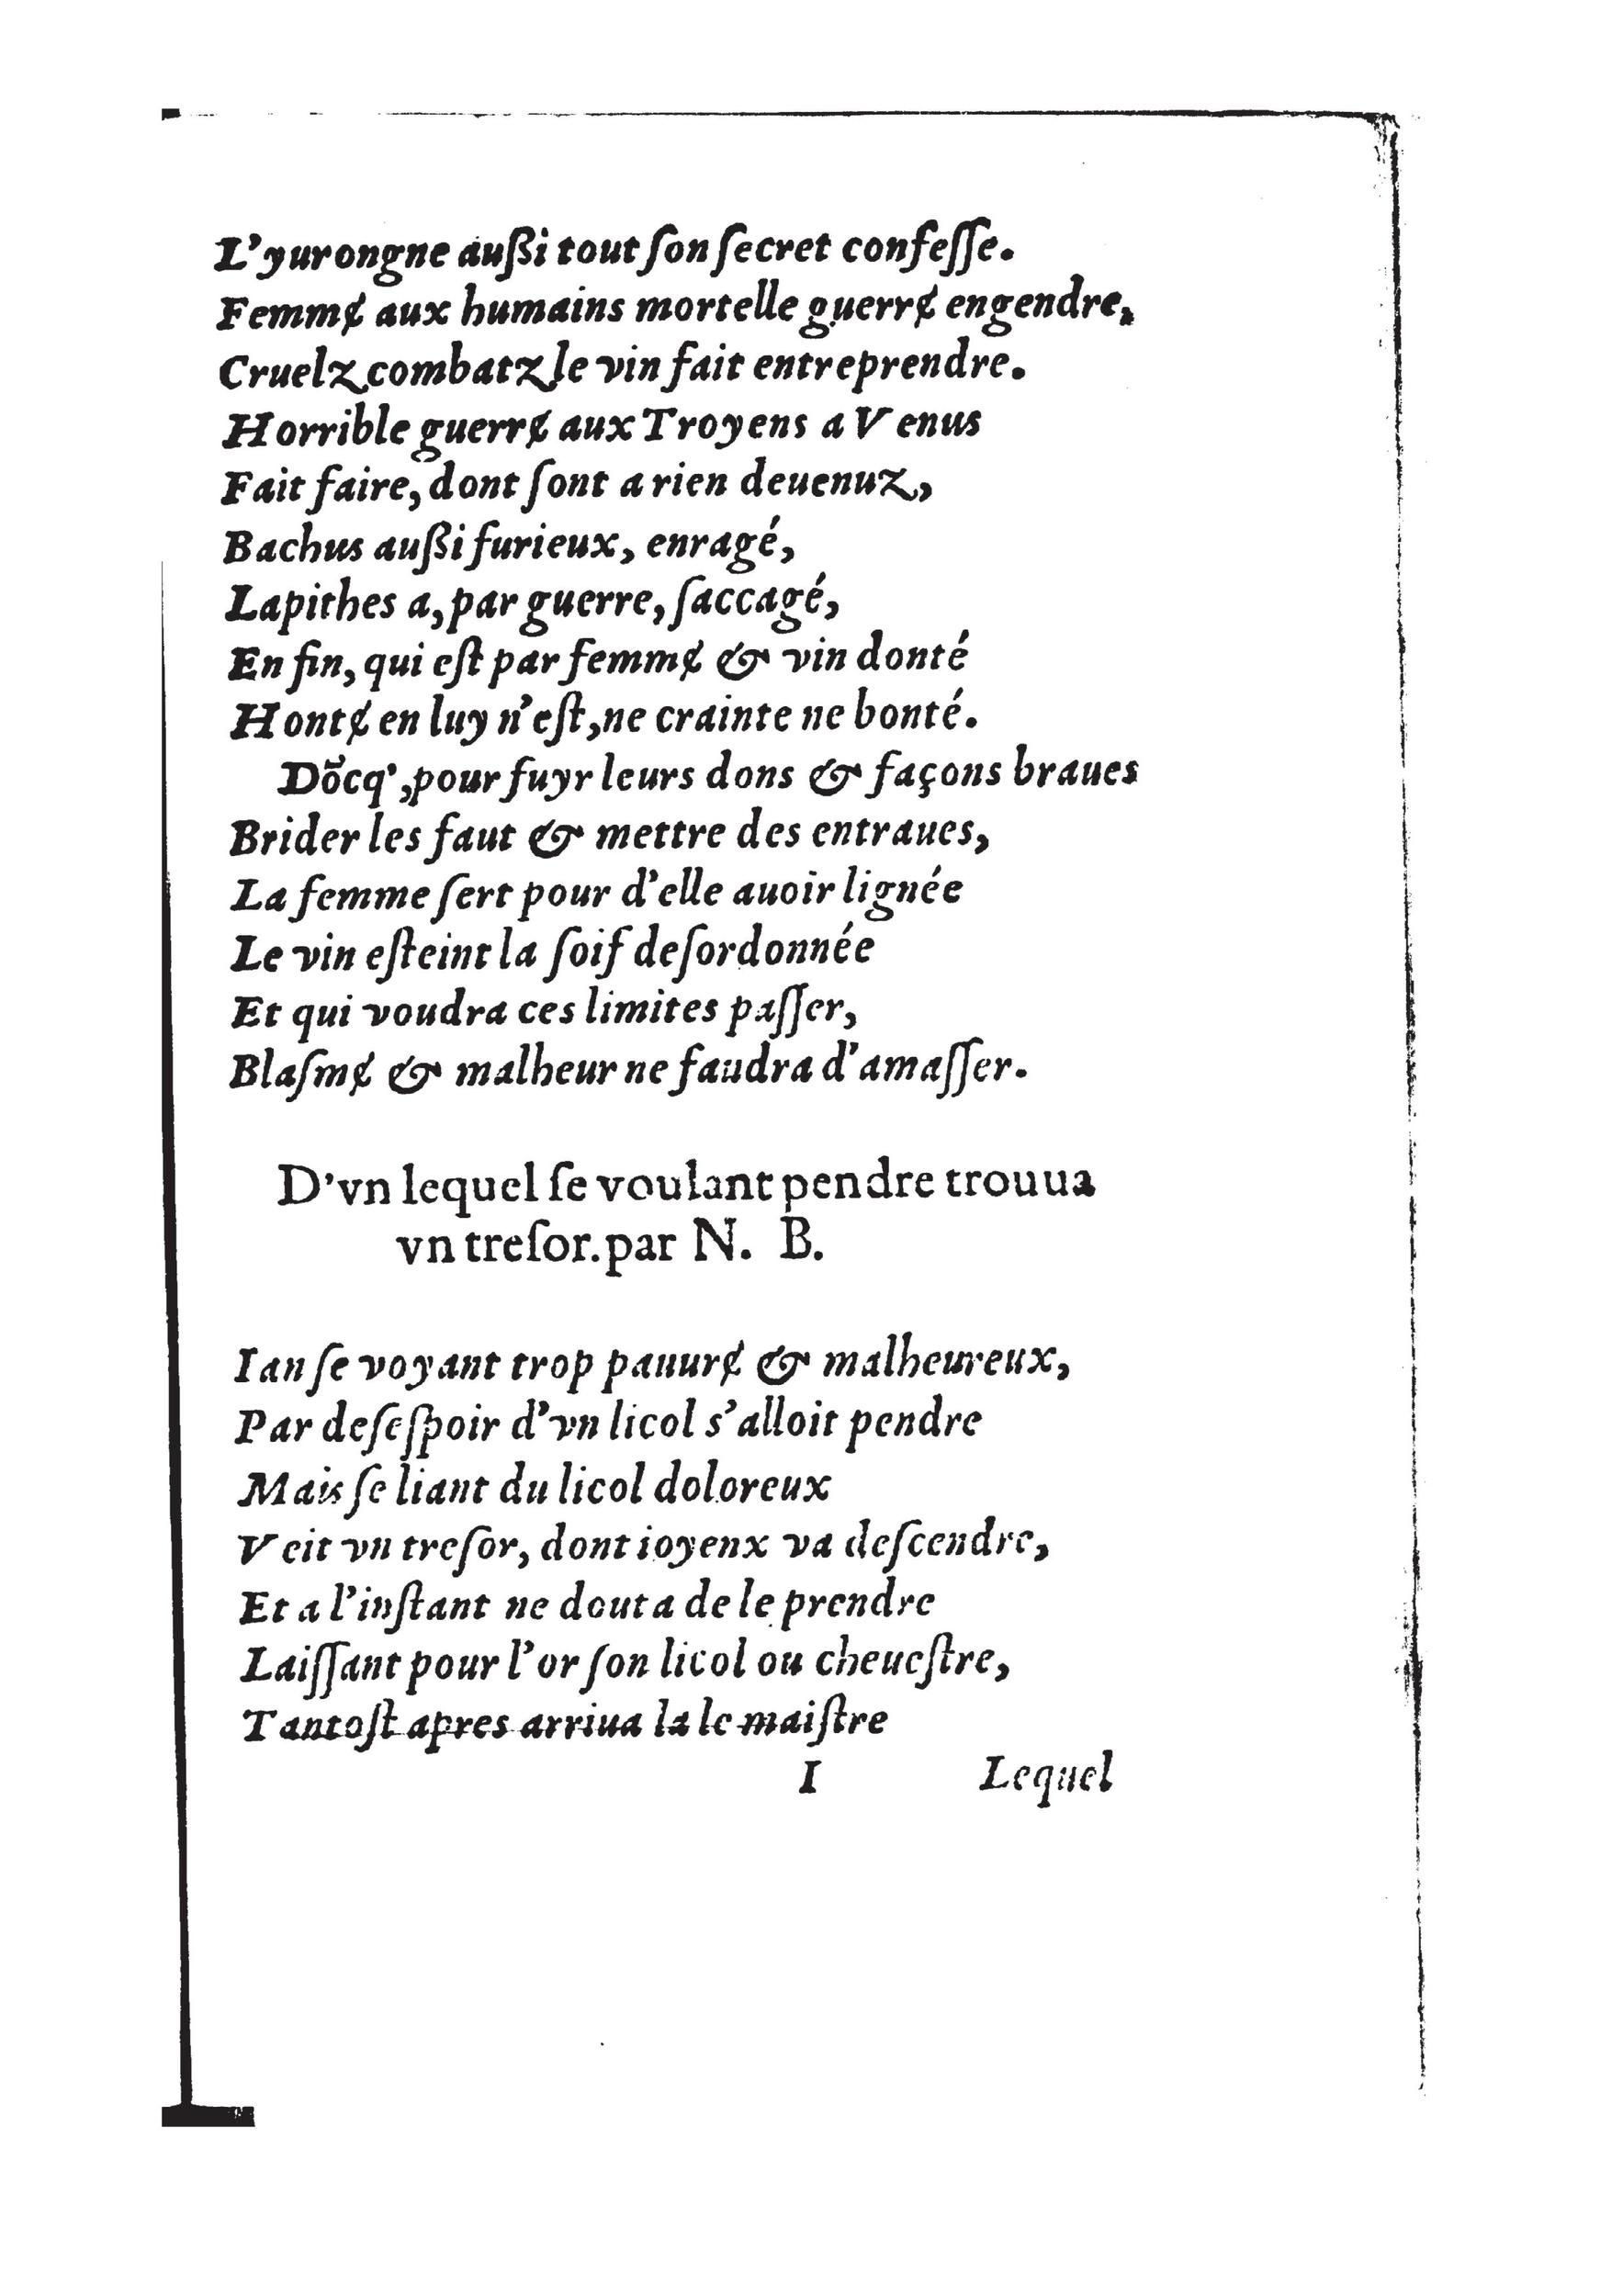 L'yurongne außi tout ſon ſecret confeſſe.
Femmɇ aux humains mortelle guerrɇ engendre,
Cruelz combatz le vin fait entreprendre.
Horrible guerrɇ aux Troyens a Venus
Fait faire, dont ſont a rien deuenuz,
Bachus außi furieux, enragé,
Lapithes a, par guerre, ſaccagé,
En fin, qui eſt par femmɇ & vin donté
Hontɇ en luy n'eſt, ne crainte ne bonté.
Dõcq', pour fuyr leurs dons & façons braues
Brider les faut & mettre des entraues,
La femme ſert pour d'elle auoir lignée
Le vin eſteint la ſoif deſordonnée
Et qui voudra ces limites paſſer,
Blaſmɇ & malheur ne faudra d'amaſſer.
D'vn lequel ſe voulant pendre trouua
vn treſor. par N. B.
Ian ſe voyant trop pauurɇ & malheureux,
Par deſeſpoir d'vn licol s'alloit pendre
Mais ſe liant du licol doloreux
Veit vn treſor, dont ioyenx va deſcendre,
Et a l'inſtant ne douta de le prendre
Laiſſant pour l'or ſon licol ou cheueſtre,
Tantoſt apres arriua la le maiſtre
I Lequel